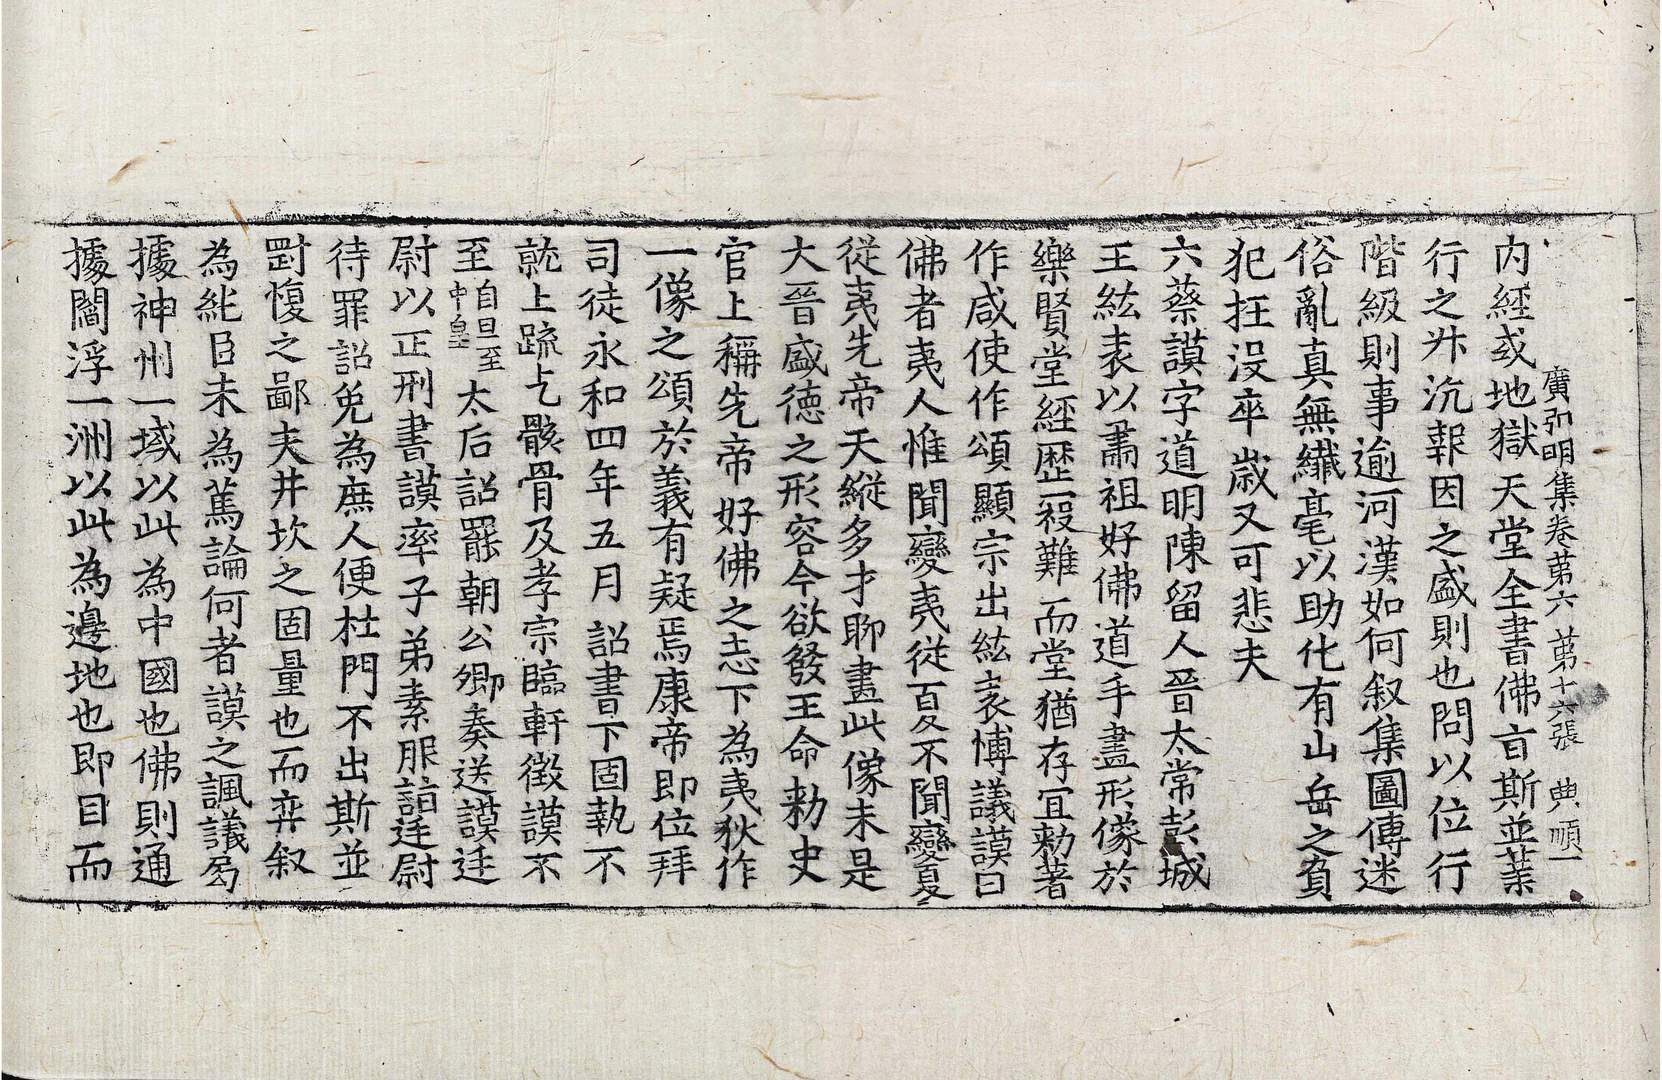 廣弘明集卷第六 第十六張 典 順一
内經或地獄天堂全書佛言斯並業
行之升沉報因之盛則也問以位行
階級則事逾河漢如何叙集圖傳迷
俗亂真無纖毫以助化有山岳之負
犯抂没卒歲又可悲夫
六蔡謨字道明陳留人晉太常彭城
王紘表以肅祖好佛道手畫形像於
樂賢堂經歷寇難而堂猶存宜勑著
作咸使作頌顯宗出紘表博議謨曰
佛者夷人惟聞變夷從夏不聞變夏
從夷先帝天縱多才聊畫此像未是
大晉盛德之形容今欲發王命勑史
官上稱先帝好佛之志下為夷狄作
一像之頌於義有疑焉康帝即位拜
司徒永和四年五月詔書下固執不
就上疏乞骸骨及孝宗臨軒徵謨不
至自旦至中皇太后詔罷朝公卿奏送謨廷
尉以正刑書謨率子弟素服詣廷尉
待罪詔免為庶人便杜門不出斯並
剛愎之鄙夫井坎之固量也而弈叙
為能臣未為篤論何者謨之諷議局
據神州一域以此為中國也佛則通
據閻浮一洲以此為邊地也即目而